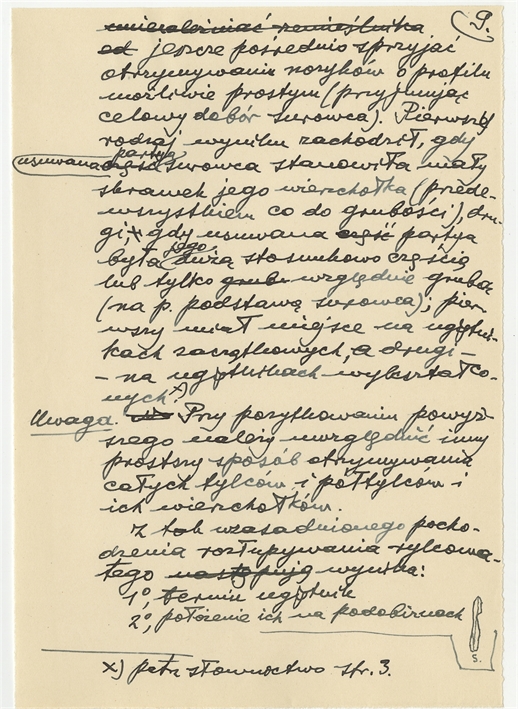 9.
umiejętniać rzemieślnika
od jeszcze pośrednio sprzyjać
otrzymywaniu nożyków o profilu
możliwie prostym (przyjmując
celowy dobór surowca). Pierwszy
rodzaj wyniku zachodził, gdy
usuwana część partya surowca stanowiła mały
skrawek jego wierzchołka (przede-
wszystkiem co do grubości), dru-
gi, gdy usuwana część partya
była jego dużą stosunkowo częścią
lub tylko grub względnie grubą
(na p. podstawą surowca); pier-
wszy miał miejsce na węgłni-
kach zaczątkowych, a drugi –
– na węgłnikach wykształco-
nych. x)
Uwaga. Przy pożytkowaniu powyż-
szego należy uwzględnić inny
prostszy sposób otrzymywania
całych tylców i półtylców i
ich wierzchołków.
Z tak uzasadnionego pocho-
dzenia rozłupywania rylcowa-
tego następują wynika:
1°, termin węgłnik
2°, położenie ich na podobiznach
s.
x) patrz słownictwo str. 3.